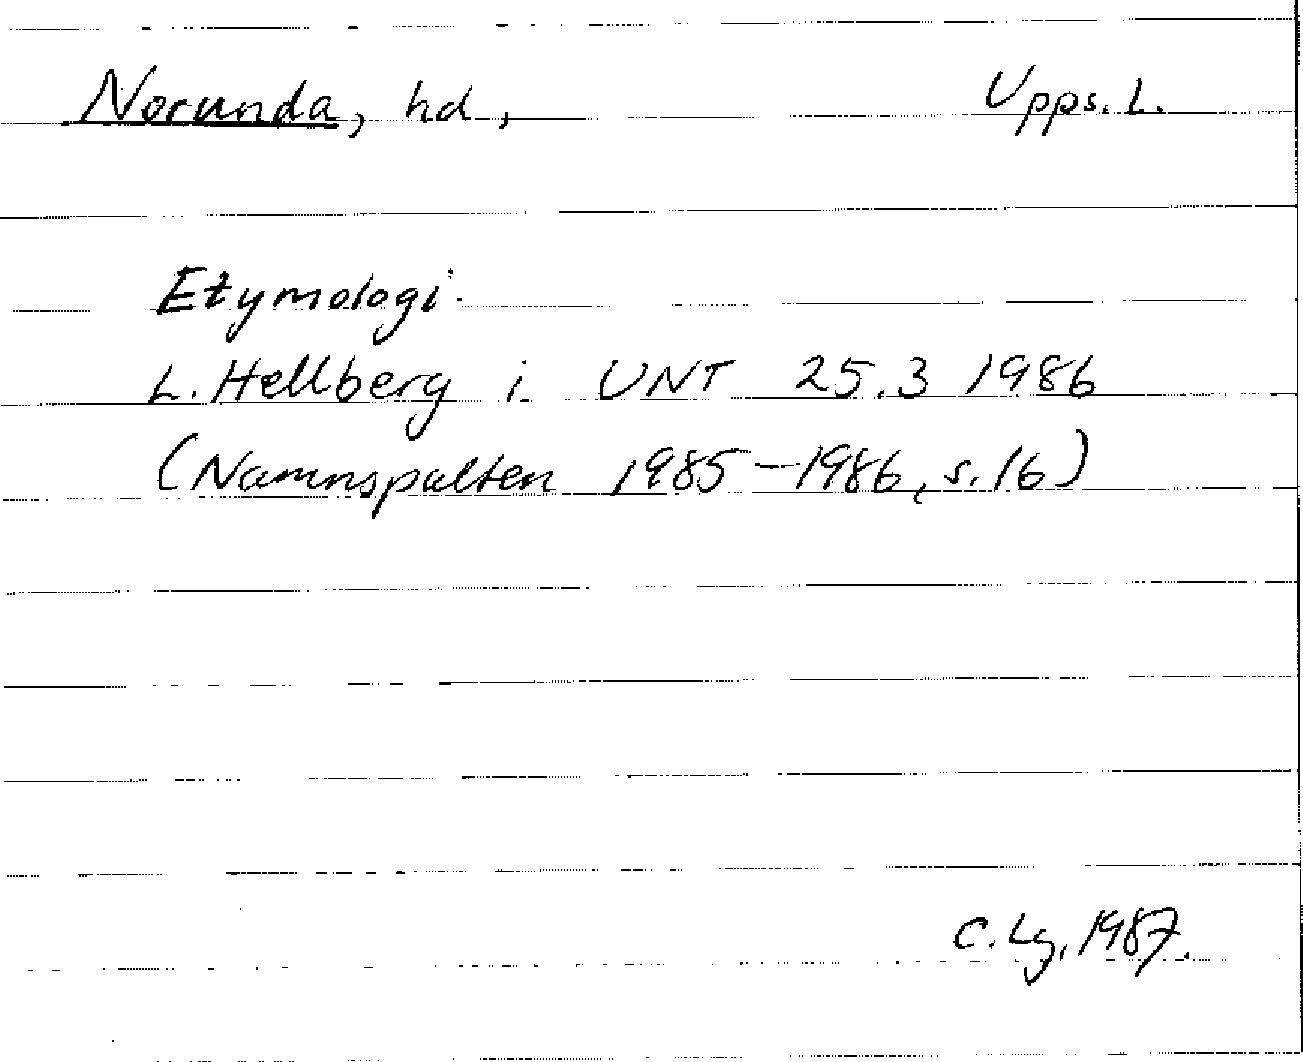 Norunda, hd, Upps. L.
Etymologi
L. Hellberg i UNT 25.3 1986
(Namnspalten 1985-1986, s. 16)
C. Lg. 1987.